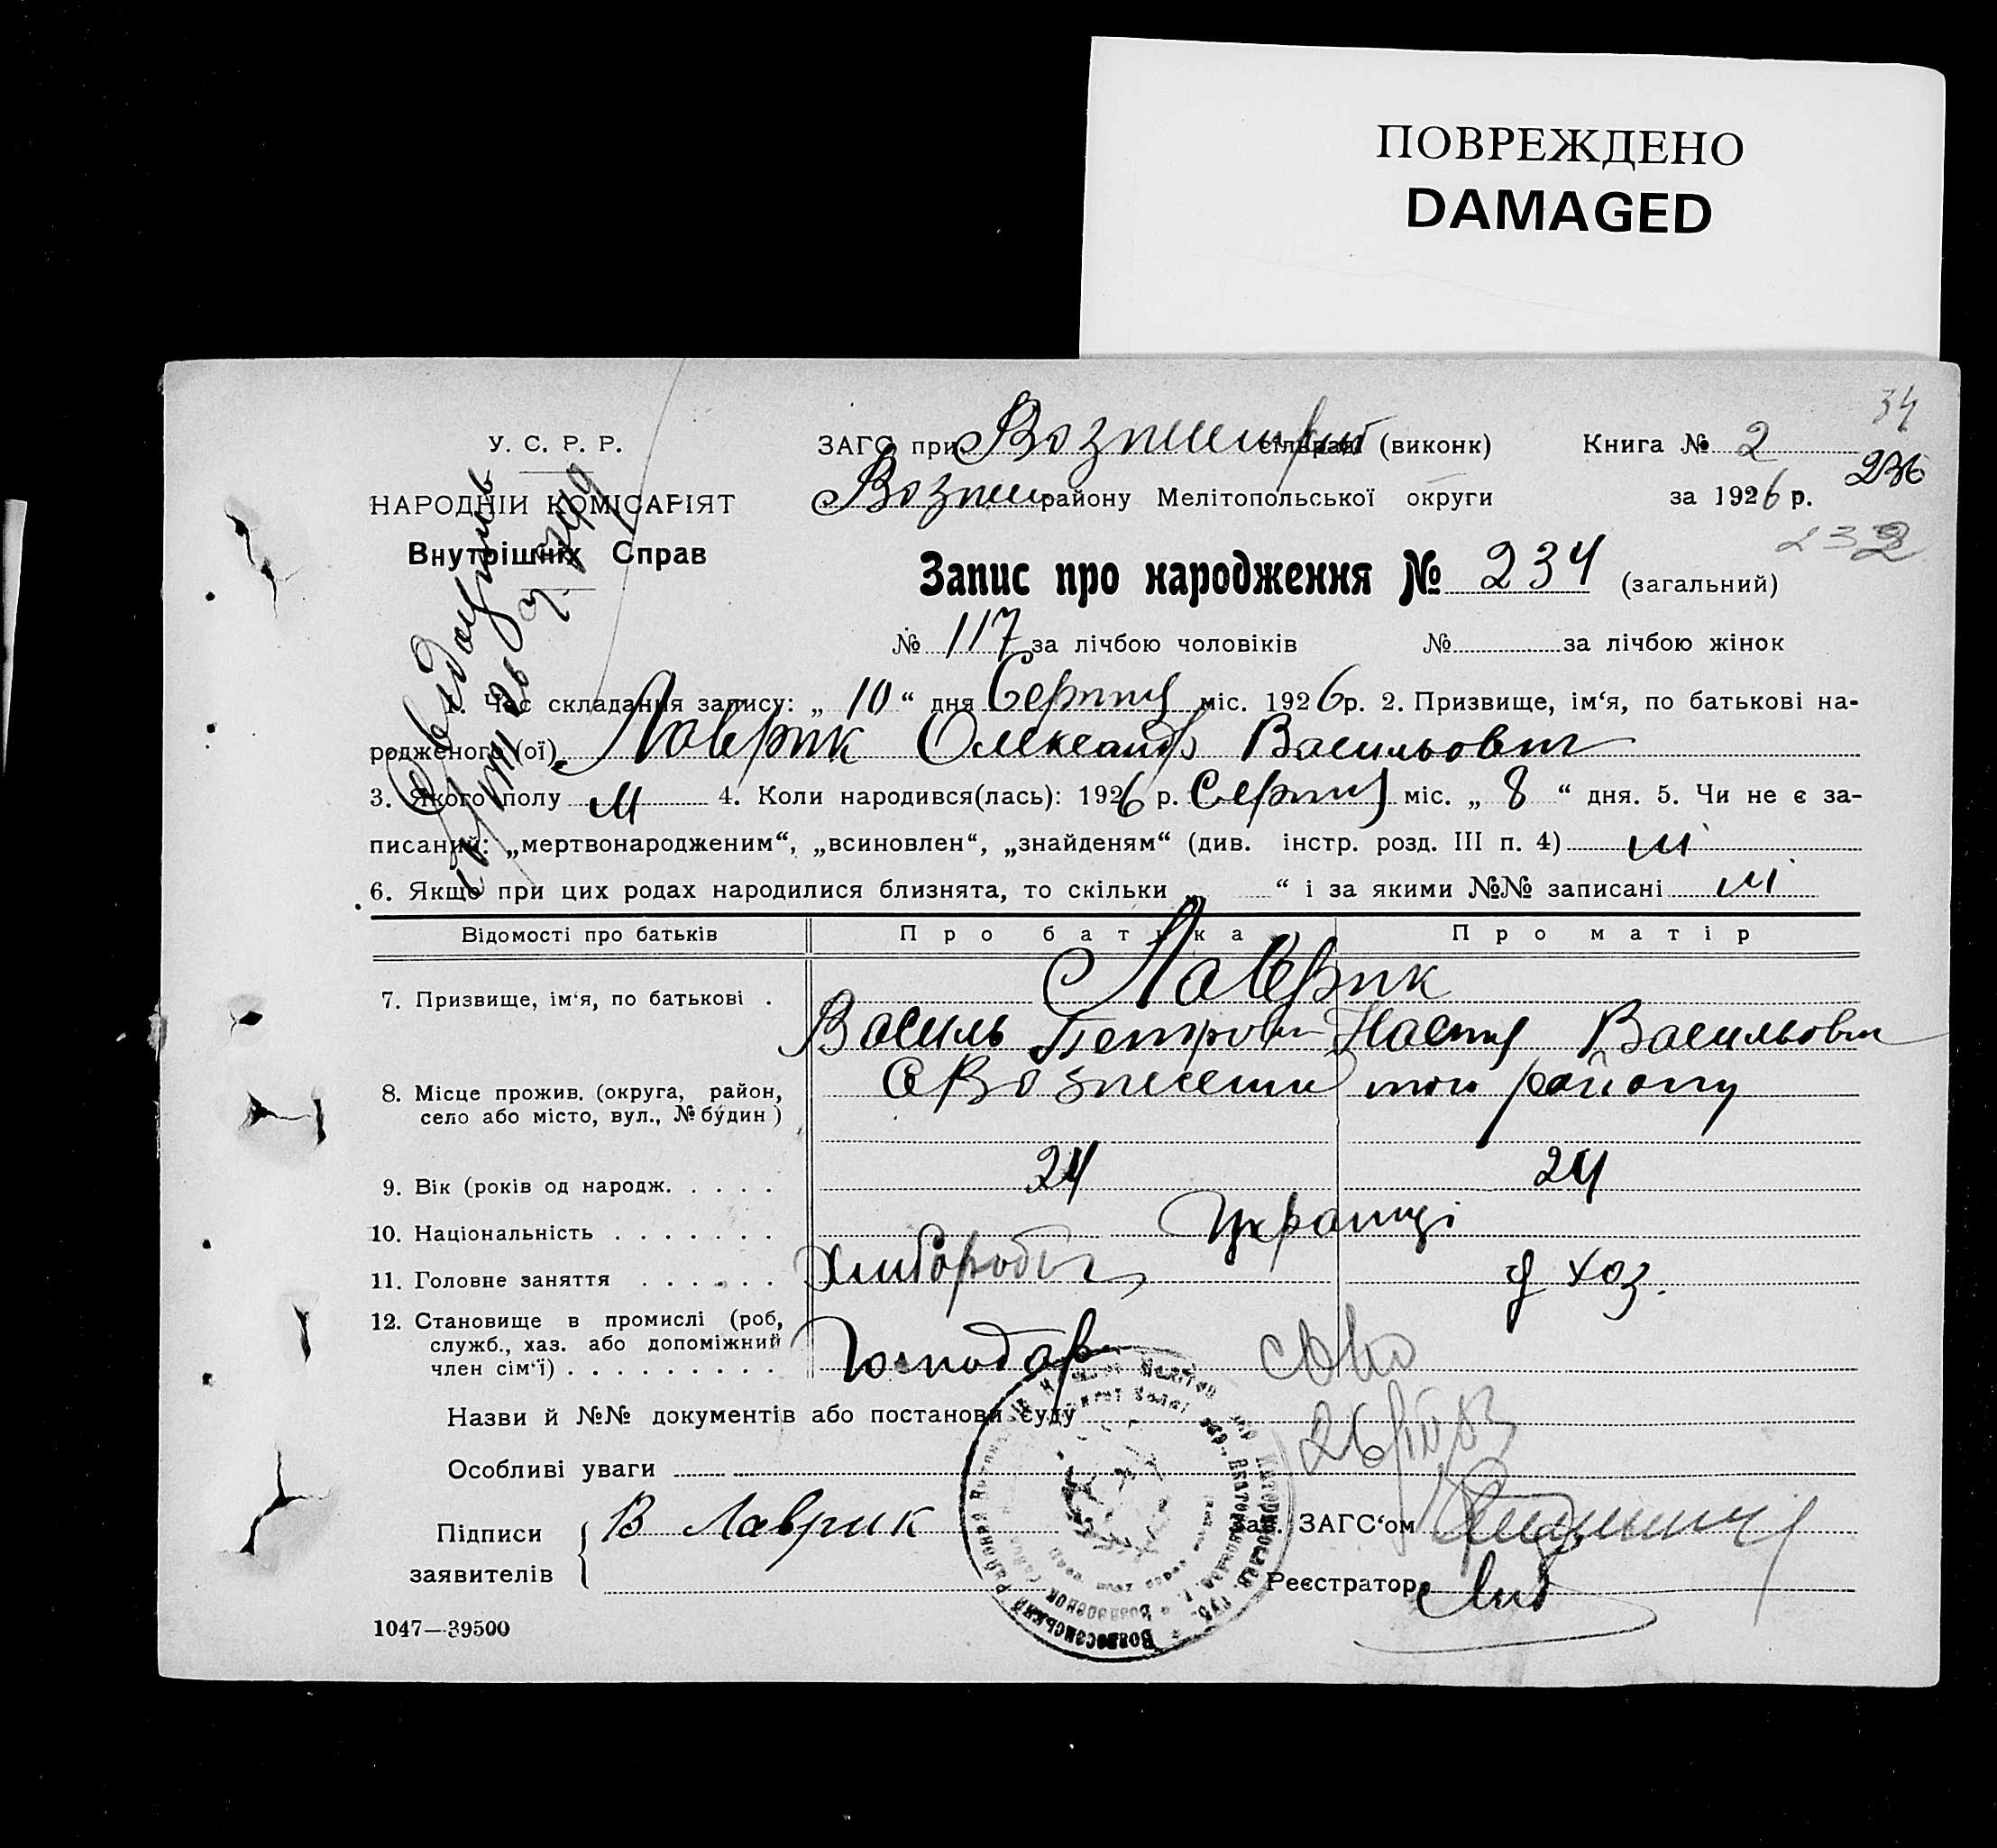 ПОВРЕЖДЕНО
DAMAGED
34
У. С. Р. Р.
ЗАГС при сільраді (виконк) Книга № 2
236
НАРОДНІЙ КОМІСАРІЯТ
Возне району Мелітопольської округи за 1926 р.
232
Внутрішніх Справ
Запис про народження № 234 (загальний)
№ 117 за лічбою чоловіків № за лічбою жінок
1. Час складання запису: „ 10 “ дня Серпня міс. 1926 р. 2. Призвище, ім‘я, по батькові на-
родженого (ої) Лаврик Олександр Васильович
3. Якого полу М 4. Коли народився(лась): 1926 р. Серпня міс. „ 8 “ дня. 5. Чи не є за-
писаний: „мертвонародженим“, „всиновлен“, „знайденям“ (див. інстр. розд. III п. 4) ні
6. Якщо при цих родах народилися близнята, то скільки „ “ і за якими №№ записані ні
Відомості про батьків Про батька Про матір
7. Призвище, ім‘я, по батькові . Лаврик
Василь Петрович Настя Васильовна
8. Місце прожив. (округа, район, село або місто, вул., № будин) району
9. Вік (років од народж. . . . . 24 24
10. Національність . . . . . . . Українці
11. Головне заняття . . . . . . Хлибороб д хоз.
12. Становище в промислі (роб,
служб., хаз. або допоміжний
член сім‘ї) . . . . . . . . . Господар
Назви й №№ документів або постанови суду
Особливі уваги
Підписи В Лаврик Зав. ЗАГС‘ом
заявителів Реєстратор
1047—39500